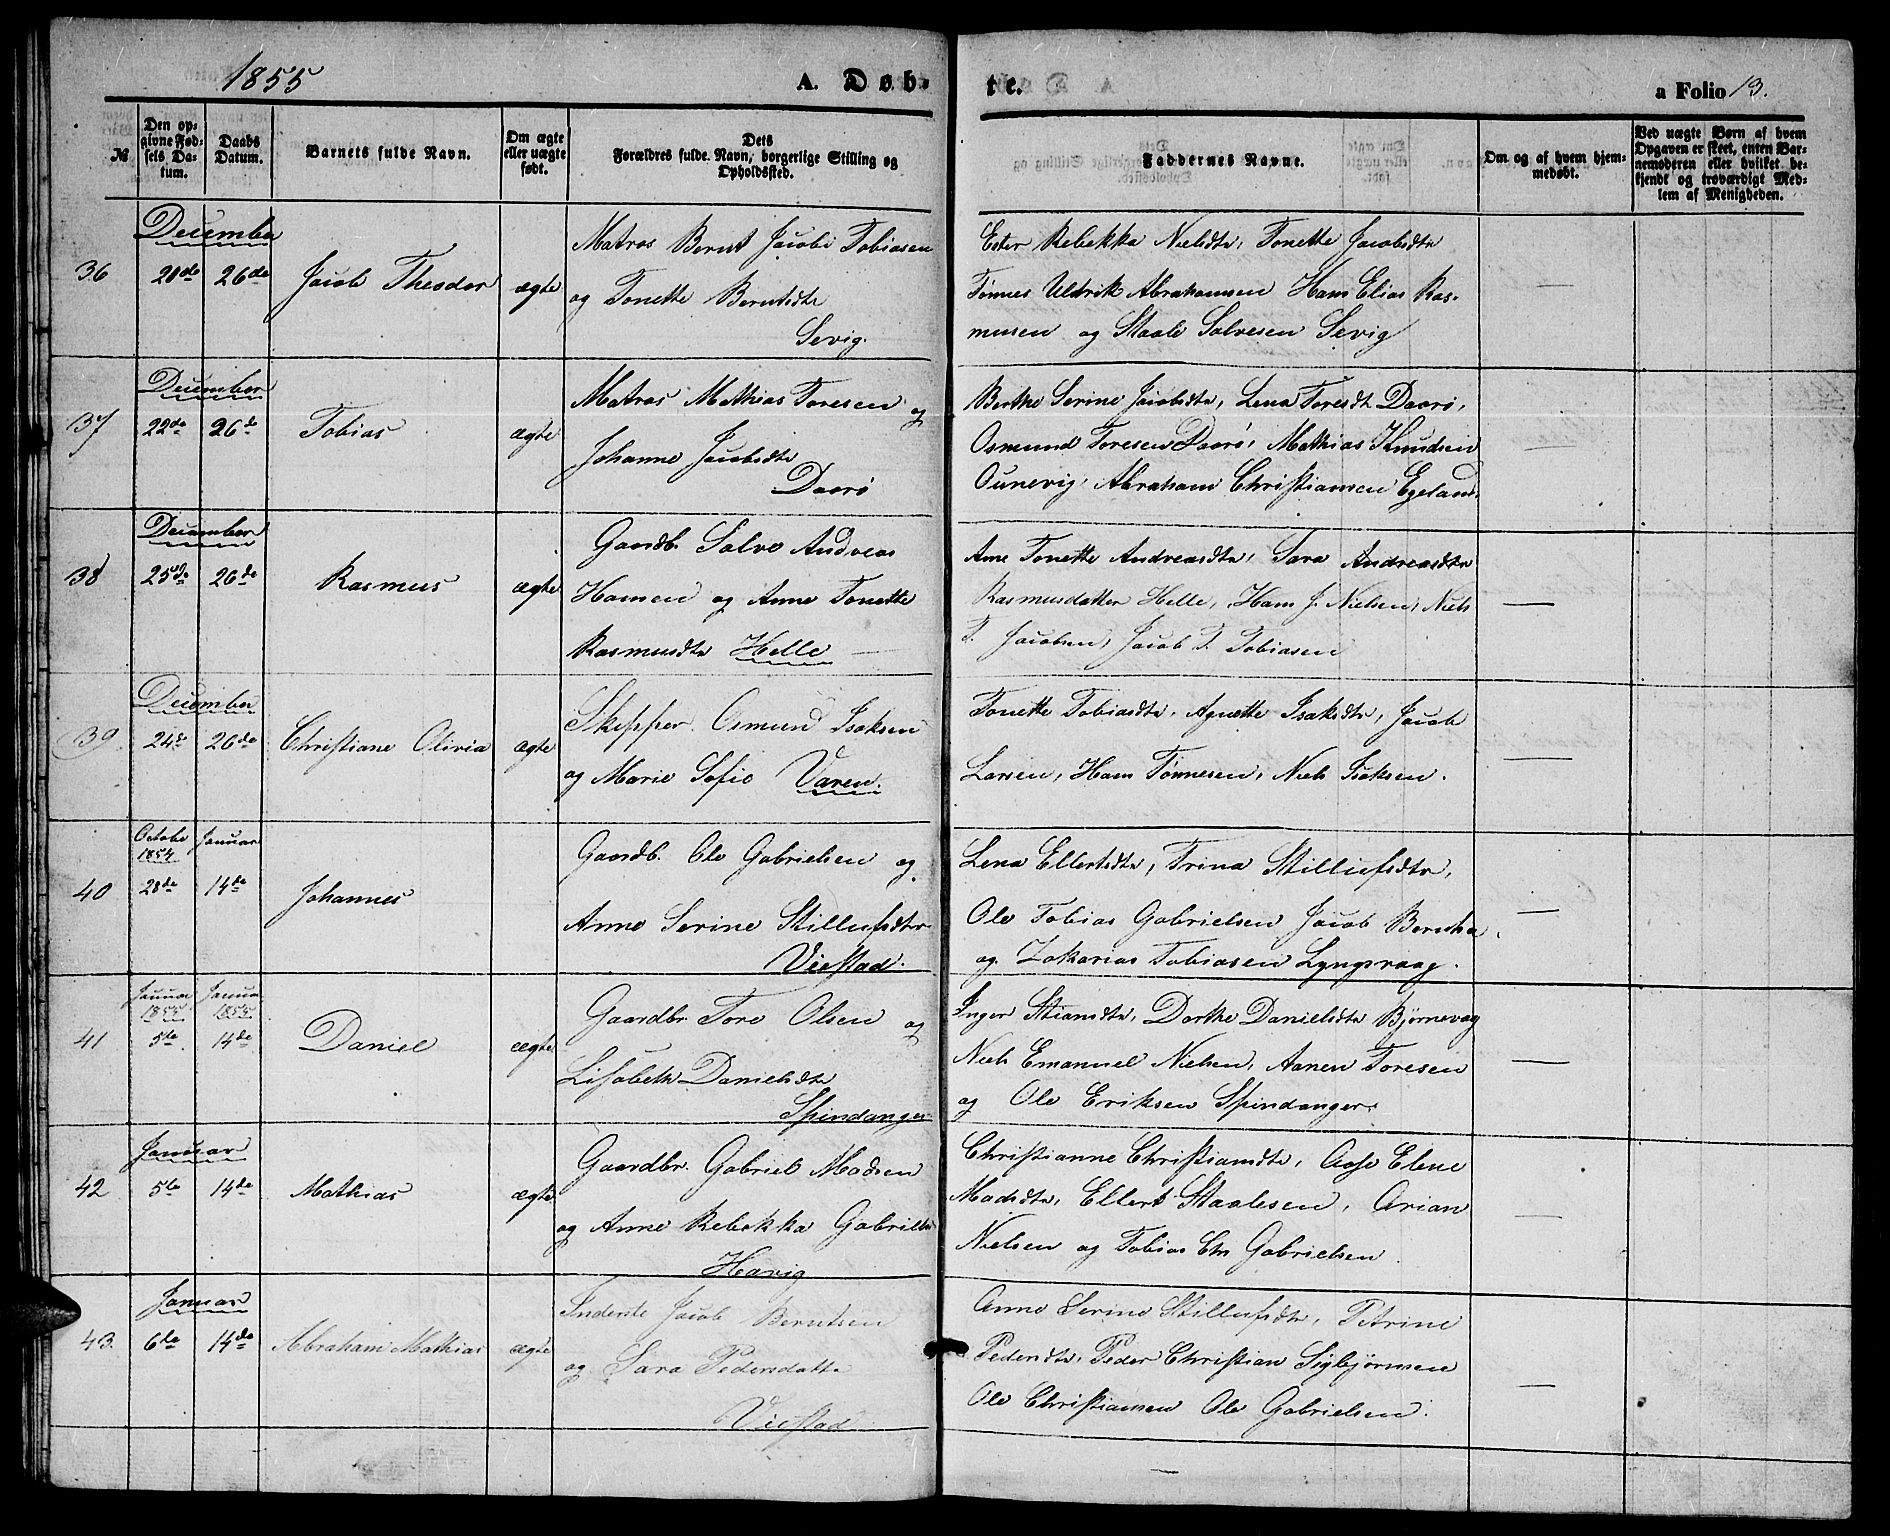 1855
A. Døb-
te.
a Folio 13.
№
Den op-
givne Fød-
sels Da-
tum.
Daabs
Datum.
Barnets fulde Navn.
Om ægte
eller uægte
født.
Dets
Forældres fulde Navn, borgerlige Stilling og
Opholdssted.
Faddernes Navne.
Om og af hvem hjem-
medøbt.
Ved uægte Børn af hvem
Opgaven er skeet, enten Bar-
nemoderen eller hvilket be-
kjendt og troværdigt Med-
lem af Menigheden.
December
36 20de 26de Jacob Theodor ægte
Matros Bernt Jacobi Tobiasen
og Tonette Berntsdtr
Sevig.
Ester Rebekka Nielsdtr, Tonette Jacobsdtr
Tønnes Uldrik Abrahamsen Hans Elias Ras-
musen og Staale Salvesen Sevig
—
December
37 22de 26de Tobias ægte
Matros Mathias Toresen og
Johanne Jacobsdtr
Daarø
Berthe Serine Jacobsdtr, Lena Toresdt Daarø,
Osmund Toresen Daarø, Mathias Knudsen
Ounevig, Abraham Christiansen Egeland.
—
December
38 25de 26de Rasmus ægte
Gaardb. Salve Andreas
Hansen og Anne Tonette
Rasmusdtr Helle —
Ane Tonette Andreasdtr, Sara Andreasdtr
Rasmusdatter Helle, Hans J. Nielsen, Niels
T. Jacobsen, Jacob T. Tobiasen
—
December
39. 24de 26de Christiane Olivia ægte
Skipper Osmund Isaksen
og Marie Sofie Varen.
Tonette Tobiasdtr, Agnette Isaksdtr, Jacob
Larsen, Hans Tønnesen, Niels Isaksen.
—
Octobe Januar
1854
40 28de 14de Johannes
Gaardb. Ole Gabrielsen og
Anne Serine Stillufsdtr
Viestad.
Lena Ellertsdtr, Trina Stillufsdtr,
Ole Tobias Gabrielsen Jacob
og Zakarias Tobiasen Lyngsvaag.
—
Januar Januar
1855 1855
41 5te 14de Daniel ægte
Gaardbr. Tore Olsen og
Lisabeth Danielsdtr
Spindanger
Inger Stiansdtr, Dorthe Danielsdtr Bjørnevag
Niels Emanuel Nielsen, Aanen Toresen
og Ole Eriksen Spindanger.
—
Januar
42 5te 14de Mathias ægte
Gaardbr. Gabriel Madsen
og Anne Rebekka Gabrielsd
Havig
Christianne Christiansdtr, Aase Elene
Madsdtr, Ellert Staalesen, Arian
Nielsen og Tobias Chr Gabrielsen.
—
Januar
43. 6te 14de Abraham Mathias ægte
Inderste Jacob Berntsen
og Sara Pedersdatter
Viestad
Anne Serine Stillufsdtr, Petrine
Pedersdtr, Peder Christian Sigbjørnsen
Ole Christiansen Ole Gabrielsen.
—